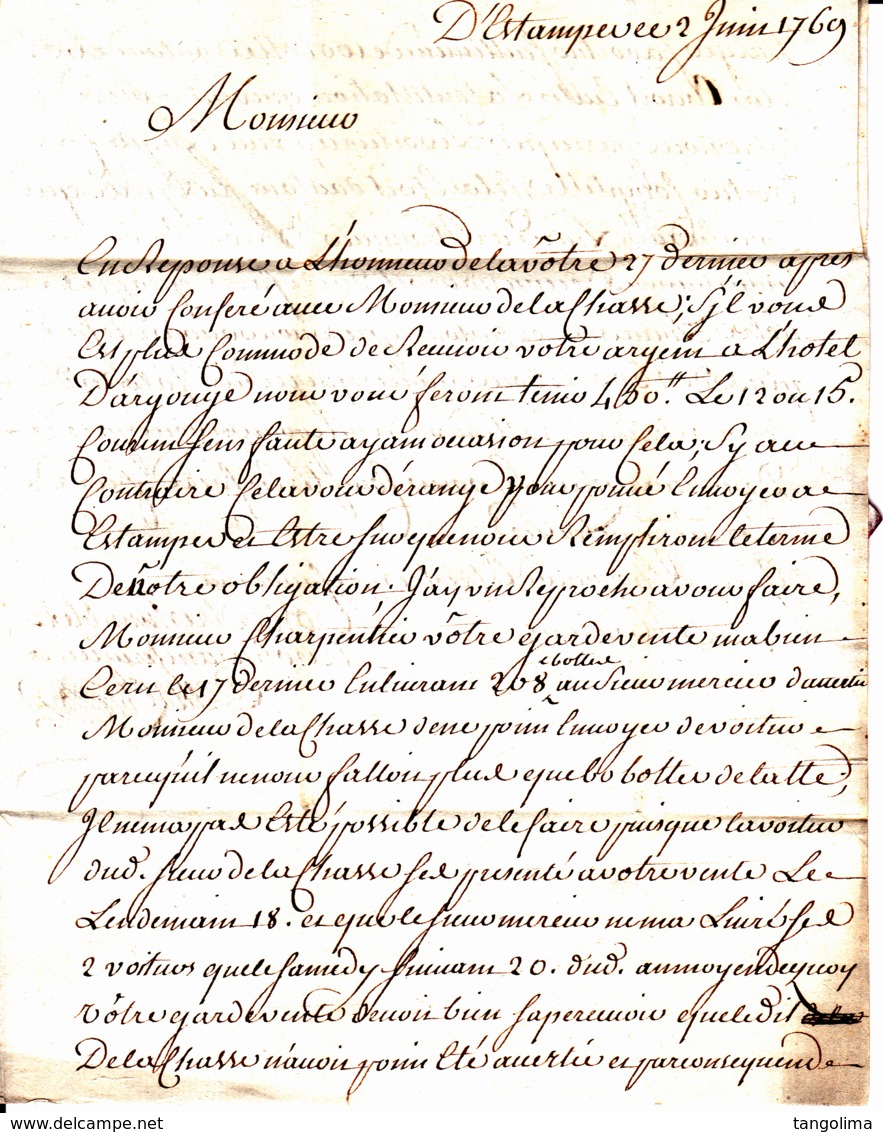 D'Estampes ce 2 Juin 1769
Monsieur
En Reponse a L'honneur de la vôtre 27 dernier apres
avoir Conferé avec Monsieur de la Chasse; s'jl vous
Est plus Commode de Recevoir votre argent a L'hotel
D'argouge nous vous feront tenir 450.tt Le 12 ou 15.
Courant sens faute ayant ocasion pour Cela; Sy au
Contraire Cela vous dérange vous pouvé Envoyer a
Estampes et Estre sur que nous Remplirons le terme
De nôtre obligation. J'ay un Reproche a vous faire,
Monsieur Charpéntié vôtre garde vente ma bien
Ecrit le 17 dernier En livrant 208 bottes au Sieur mercier d'avertir
Monsieur de la Chasse de ne point Envoyer de voiture
parcequ'il ne nous falloit plus que bottes de latte,
Jl ne ma pas Esté possible de le faire puisque la voiture
dud. sieur de la Chasse sest presenté a votre vente Le
Lendemain 18. et que le sieur mercier ne ma Livré ses
2 voitures que le samedy suivant 20. dud. au moyen de quoy
vôtre garde vente devoit bien sapercevoir que ledit
De la Chasse n'avoit point Eté avertie et par consequend
tangolima